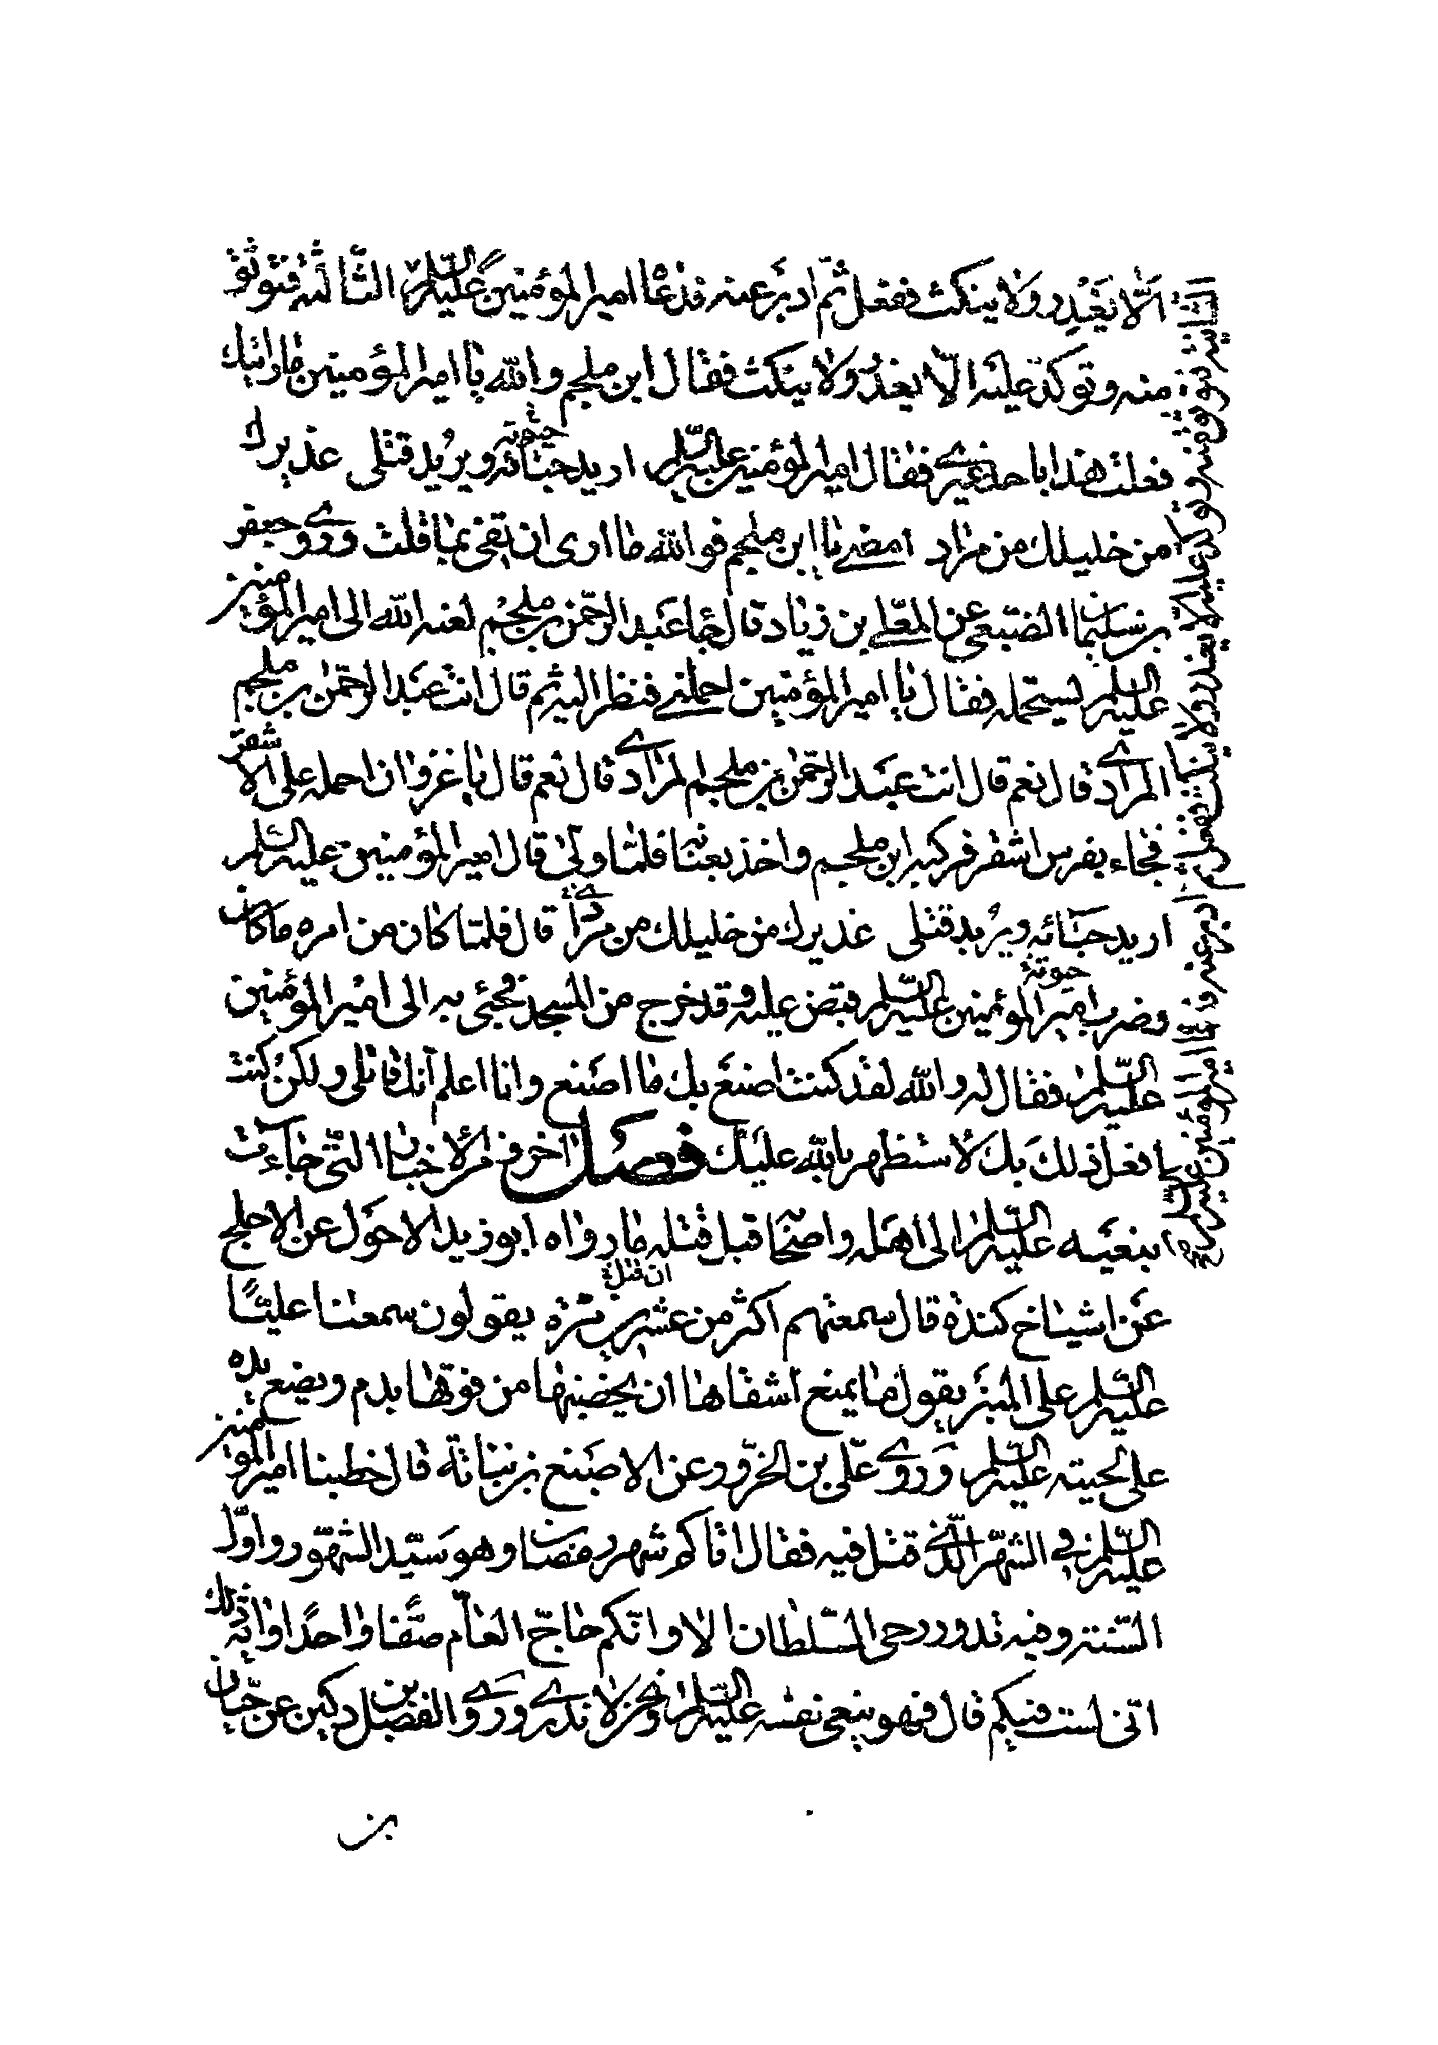 الّا يغدر ولا ينكث ففعل ثم ادبر عنه فدعا امير المؤمنين عليه السلم الثالثة فتوثق
منه وتوكد عليه الّا يغدر ولا ينكث فقال ابن ملجم والله يا امير المؤمنين ما رايتك
فعلت هذا باحد غيرى فقال امير المؤمنين عليه السلم اريد حبائه ويريد قتلى عذيرك
حيوته
من خليلك من مراد امض يا ابن ملجم فوالله ما ارى ان تفى بما قلت وروى جعفر
بن سليمان الضبعى عن المعلى بن زياد قال جاء عبد الرحمن بن ملجم لعنه الله الى امير المؤمنين
عليه السلم ليستحمله فقال يا امير المؤمنين احملنى فنظر اليه ثم قال انت عبد الرحمن بن ملجم
المرادى قال نعم قال انت عبد الرحمن بن ملجم المرادى قال نعم قال يا غزوان احمله على الاشقر
فجاء بفرس اشقر فركبه ابن ملجم واخذ بعنانه فلما ولى قال امير المؤمنين عليه السلم
اريد حبائه ويريد قتلى عذيرك من خليلك من مرادى قال فلما كان من امره ما كان
حيوته
وضرب امير المؤمنين عليه السلم قبض عليه وقد خرج من المسجد فجئ به الى امير المؤمنين
عليه السلم فقال له والله لقد كنت اصنع بك ما اصنع وانا اعلم انك قاتلى ولكن كنت
افعل ذلك بك لاستظهر بالله عليك فصل اخر فى الاخبار التى جاءت
بنعيه عليه السلم الى اهله واصحابه قبل قتله ما رواه ابو زيد الاحول عن الاجلح
ان قتل
عن اشياخ كندة قال سمعتهم اكثر من عشرين مرة يقولون سمعنا عليّا
عليه السلم على المنبر يقول ما يمنع اشقاها ان يخضبها من فوقها بدم ويضع يده
على لحيته عليه السلم وروى على بن الحزور عن الاصبغ بن نباتة قال خطبنا امير المؤمنين
عليه السلم فى الشهر الذى قتل فيه فقال اتاكم شهر رمضان وهو سيّد الشهور واول
السّنة وفيه تدور رحى السّلطان الا وانكم حاجّ العام صفّا واحدًا واية ذلك
انى لست فيكم قال فهو ينعى نفسه عليه السلم ونحن لا ندرى وروى الفضل بن دكين عن حيان
بن
الثانية فتوثق منه وتوكد عليه الا يغدر ولا ينكث ففعل ثم ادبر عنه فدعا امير المؤمنين عليه السلم